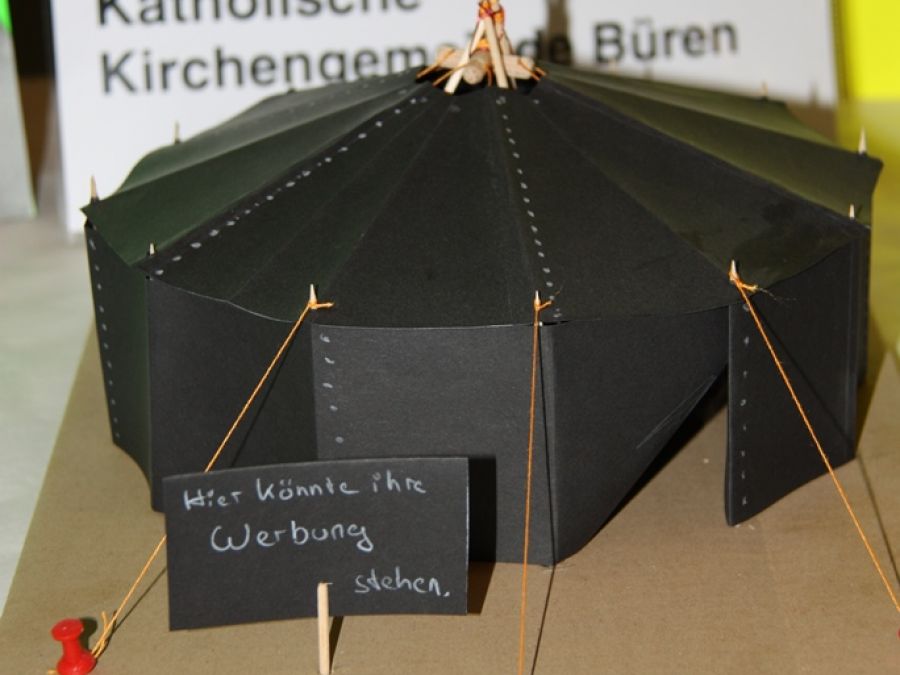 Katholische
Kirchengemeinde Büren
Hier könnte ihre
Werbung
stehen.